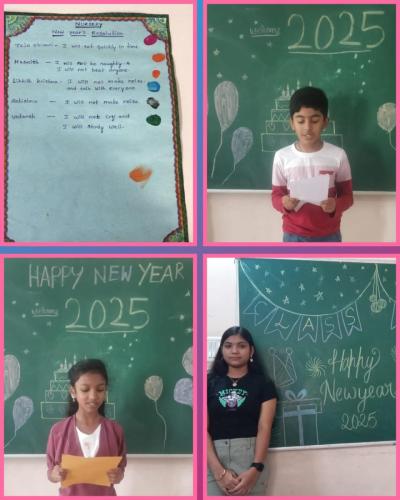 NURSERY
New year's Resolution
I will eat quickly in time
I will not be naughty &
I will not beat anyone.
I will not make noise
and talk with everyone
I will not make noise
Vedansh — I will not cry and
I will study well.
Welcome
2025
HAPPY NEW YEAR
Welcome
2025
CLASS
Happy
Newyear
2025